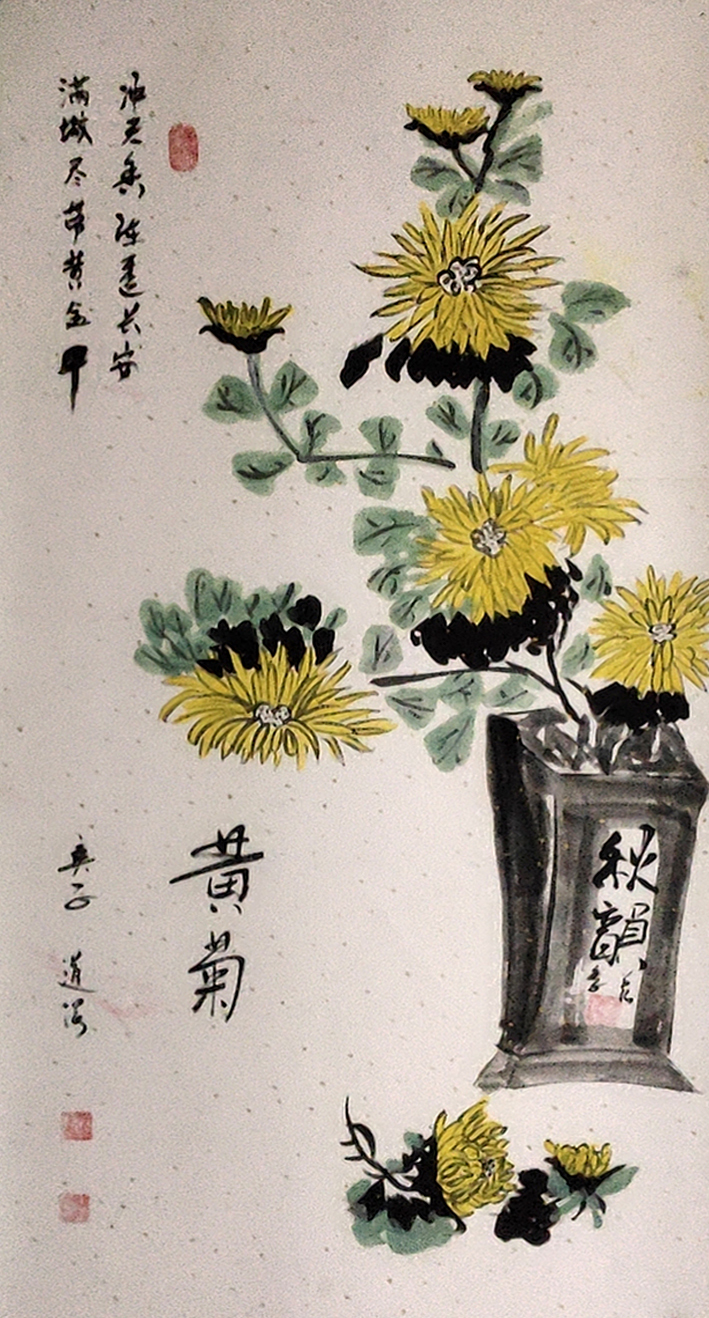 冲天香阵透长安
满城尽带黄金甲
黄菊
庚子 道
秋韻